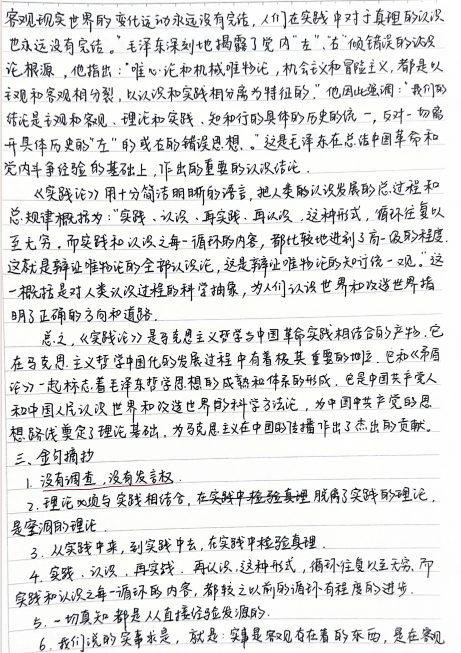 客观现实世界的变化运动永远没有完结，人们在实践中对于真理的认识
也永远没有完结。"毛泽东深刻地揭露了党内"左"、右"倾错误的认识
论根源，他指出："唯心论和机械唯物论，机会主义和冒险主义，都是以
主观和客观相分裂，以认识和实践相分离为特征的，"他因此强调："我们的
结论是主观和客观、理论和实践、知和行的具体的历史的统一，反对一切离
开具体历史的"左"的或右的错误思想。"这是毛泽东在总结中国革命和
党内斗争经验的基础上，作出的重要的认识结论．
《实践论》用十分简洁明晰的语言，把人类的认识发展的总过程和
总规律概括为："实践、认识、再实践、再认识，这种形式，循环往复以
至无穷。而实践和认识之每一循环的内容，都比较地进到了高一级的程度．
这就是辩证唯物论的全部认识论，这是辩证唯物论的知行统一观。"这
一概括是对人类认识过程的科学抽象，为人们认识世界和改造世界指
明了正确的方向和道路．
总之，《实践论》是马克思主义哲学与中国革命实践相结合的产物．它
在马克思主义哲学中国化的发展过程中有着极其重要的地位．它和《矛盾
论》一起标志着毛泽东哲学思想的成熟和体系的形成，它是中国共产党人
和中国人民认识世界和改造世界的科学方法论，为中国共产党的思
想路线奠定了理论基础，为马克思主义在中国的传播作出了杰出的贡献．
三、金句摘抄
1. 没有调查，没有发言权．
2. 理论必须与实践相结合，在实践中检验真理 脱离了实践的理论，
是空洞的理论．
3. 从实践中来，到实践中去，在实践中检验真理．
4. 实践、认识、再实践、再认识，这种形式，循环往复以至无穷，而
实践和认识之每一循环的内容，都较之以前的循环有程度的进步．
5. 一切真知都是从直接经验发源的．
6. 我们说的实事求是，就是：实事是客观存在着的东西，是在客观